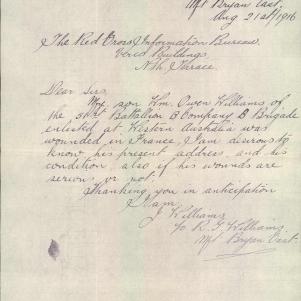 Mt Bryan East.
Aug 21st/1916
The Red Cross Information Bureau
Verco Buildings
Nth Terrace.
Dear Sirs,
My son Wm. Owen Williams of
the 51st Battalion B Company B Brigade
enlisted at Western Australia was
wounded in France, I am desirous to
know his present address, and his
condition, also if his wounds are
serious or not.
Thanking you in anticipation
I am
J Williams
c/o R. J. Williams
Mt Bryan East.